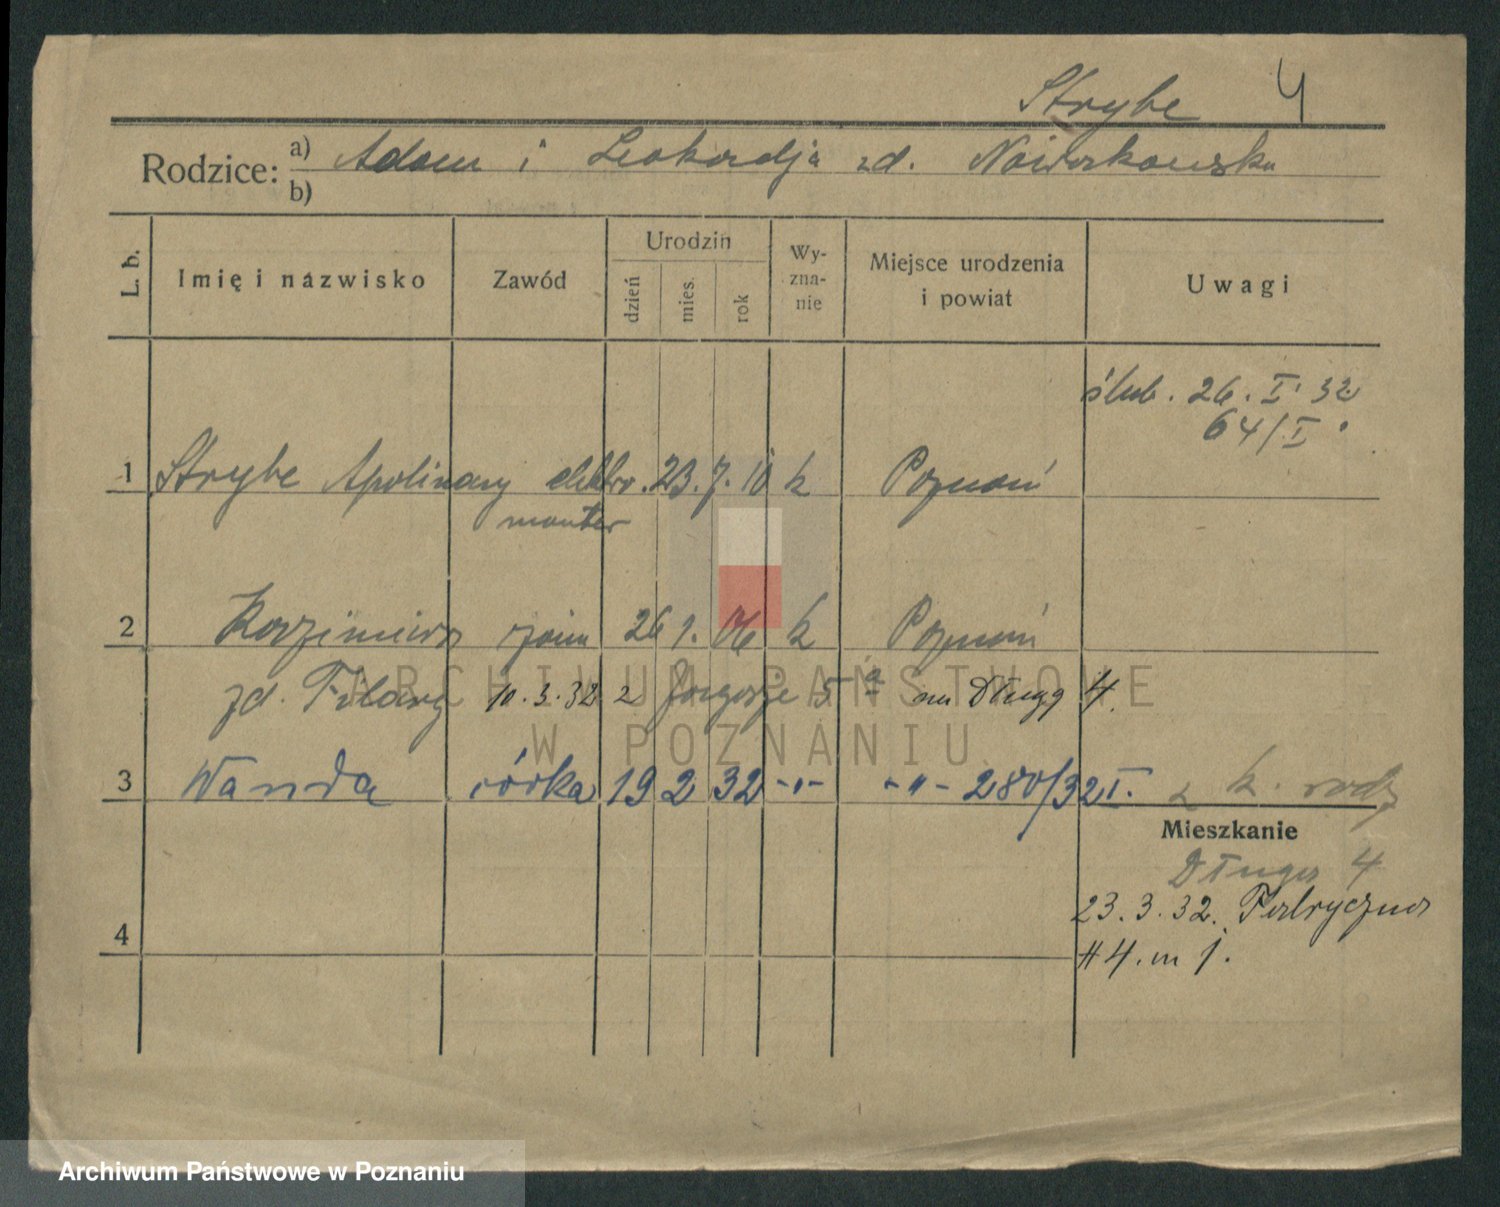 Strybe 4
Rodzice: a) Adam i Leokadja zd. Nowakowska
b)
L. b. Imię i nazwisko Zawód Urodzin dzień mies. rok Wy-zna-nie Miejsce urodzenia i powiat Uwagi
ślub. 26. I. 32
64/I
1 Strybe Apolinary elektro. 23. 7. 10 k Poznań
monter
2 Kazimiera żona 26 1. 06 k Poznań
zd. Filary 10. 3. 32 z 5a na Długą 4.
ARCHIWUM PAŃSTWOWE
W POZNANIU
3 Wanda córka 19 2 32 -"- -"- 280/32 I. z k. rodz
Mieszkanie
Długa 4
23. 3. 32. Fabryczna
4
44. m 1.
Archiwum Państwowe w Poznaniu